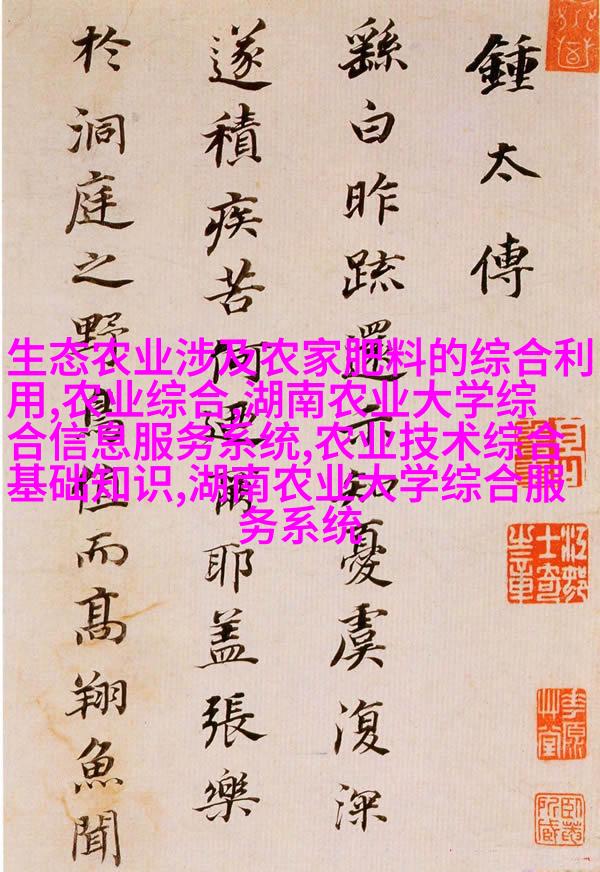 鍾太傅
繇白昨疏還示知憂虞復深
遂積疾苦何迺爾耶蓋張樂
於洞庭之野鳥值而高翔魚聞
生态农业涉及农家肥料的综合利
用,农业综合,湖南农业大学综
合信息服务系统,农业技术综合
基础知识,湖南农业大学综合服
务系统
江邨
士奇
之章
卧菴
所藏